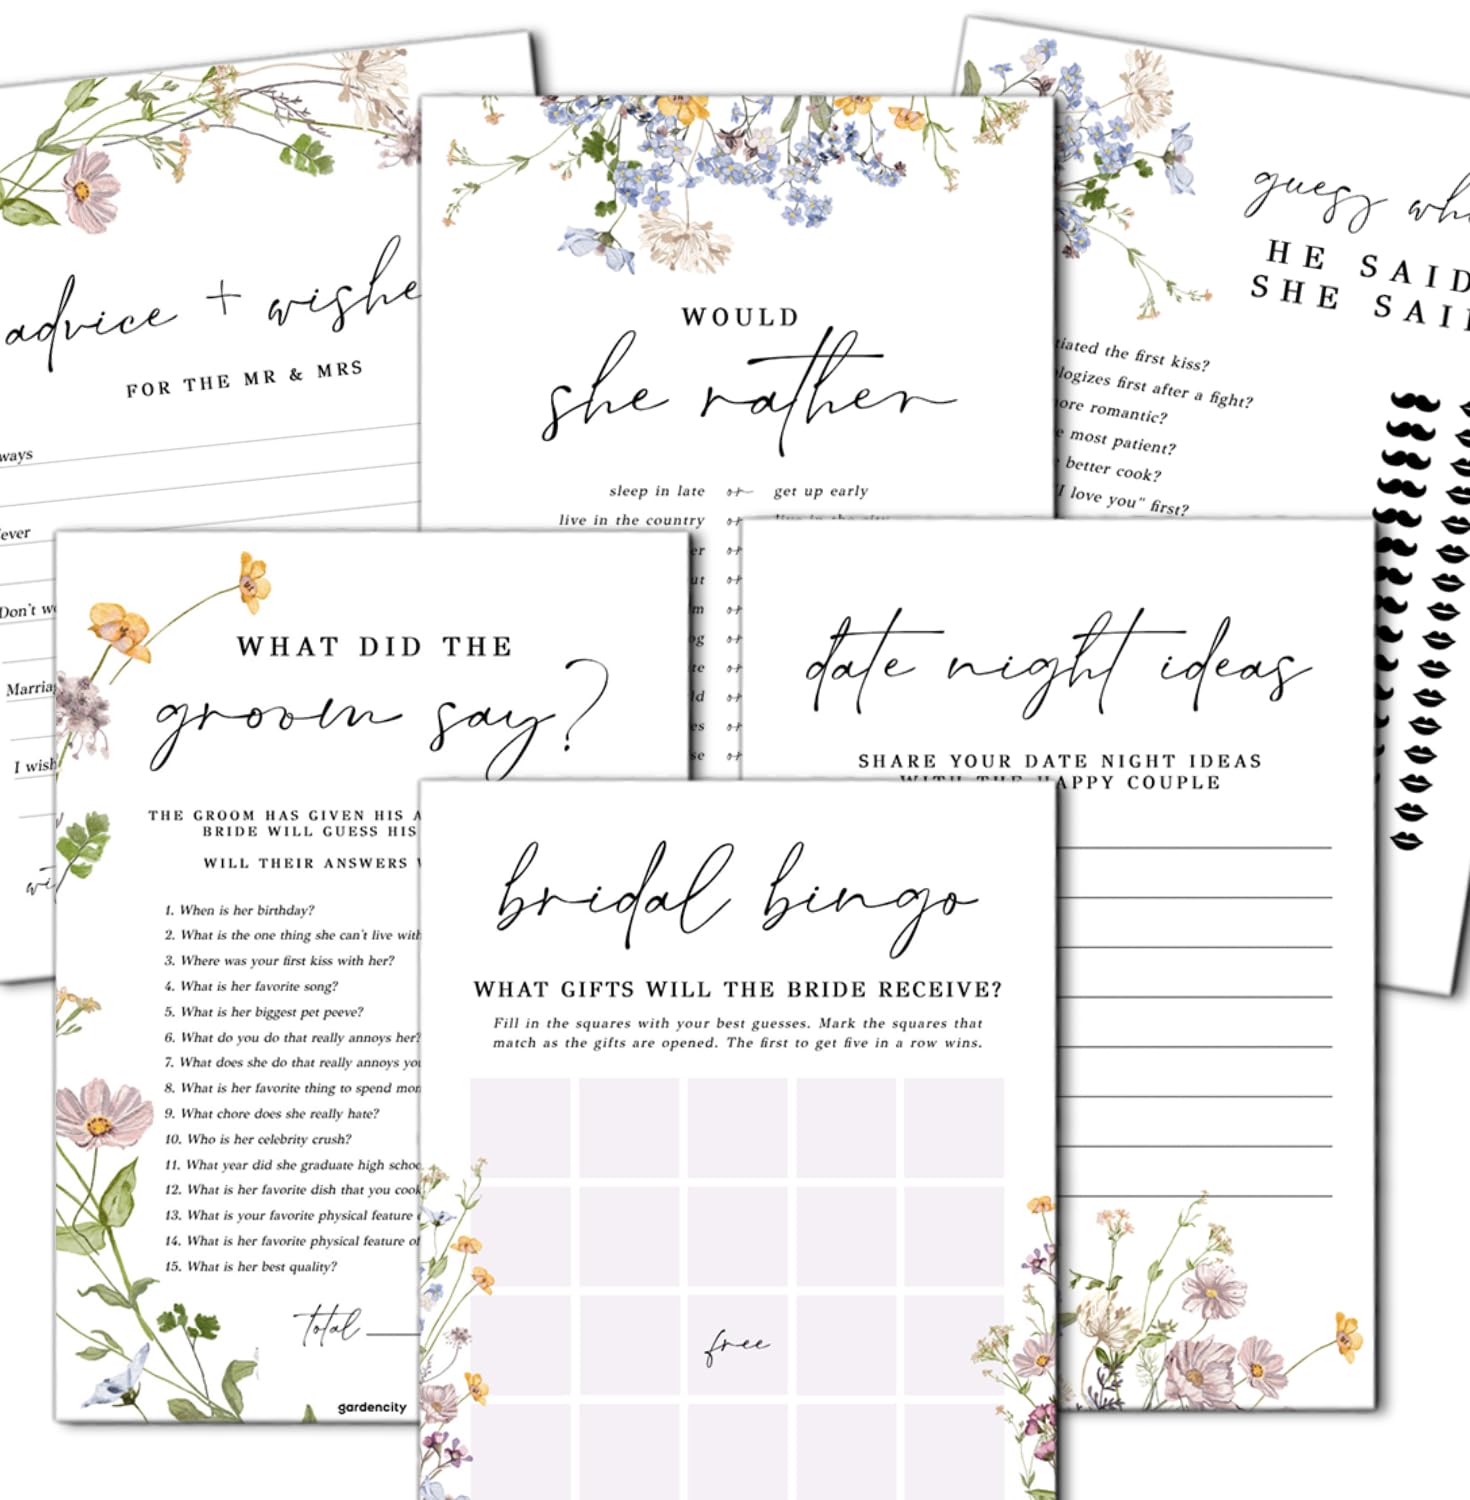 advice + wishe
FOR THE MR & MRS
ways
ever
Don't w
Marria
I wish
WOULD
she rather
sleep in late or get up early
live in the country or live in the city
er or
ut or
m or
og or
te or
ld or
es or
se or
guess who
HE SAID
SHE SAID
tiated the first kiss?
logizes first after a fight?
ore romantic?
e most patient?
better cook?
"I love you" first?
WHAT DID THE
groom say?
THE GROOM HAS GIVEN HIS A
BRIDE WILL GUESS HIS
WILL THEIR ANSWERS
1. When is her birthday?
2. What is the one thing she can't live with
3. Where was your first kiss with her?
4. What is her favorite song?
5. What is her biggest pet peeve?
6. What do you do that really annoys her?
7. What does she do that really annoys you
8. What is her favorite thing to spend mon
9. What chore does she really hate?
10. Who is her celebrity crush?
11. What year did she graduate high schoo
12. What is her favorite dish that you cook
13. What is your favorite physical feature
14. What is her favorite physical feature of
15. What is her best quality?
Total
gardencity
date night ideas
SHARE YOUR DATE NIGHT IDEAS
WITH THE HAPPY COUPLE
bridal bingo
WHAT GIFTS WILL THE BRIDE RECEIVE?
Fill in the squares with your best guesses. Mark the squares that
match as the gifts are opened. The first to get five in a row wins.
free